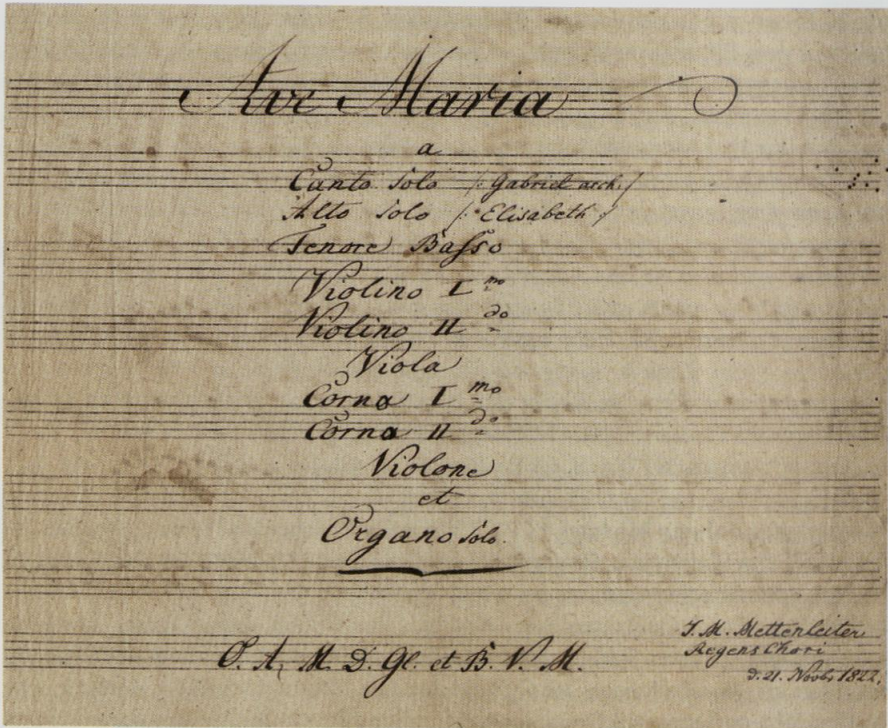 Ave Maria
a
Canto Solo /: Gabriel arch: /
Alto Solo /: Elisabeth :/
Tenore Basso
Violino I mo
Violino II do
Viola
Corno I mo
Corno II do
Violone
et
Organo Solo.
O. A. M. D. Gl. et B. V. M.
J. M. Mettenleiter
Regens Chori
d. 21. Novbr 1822.